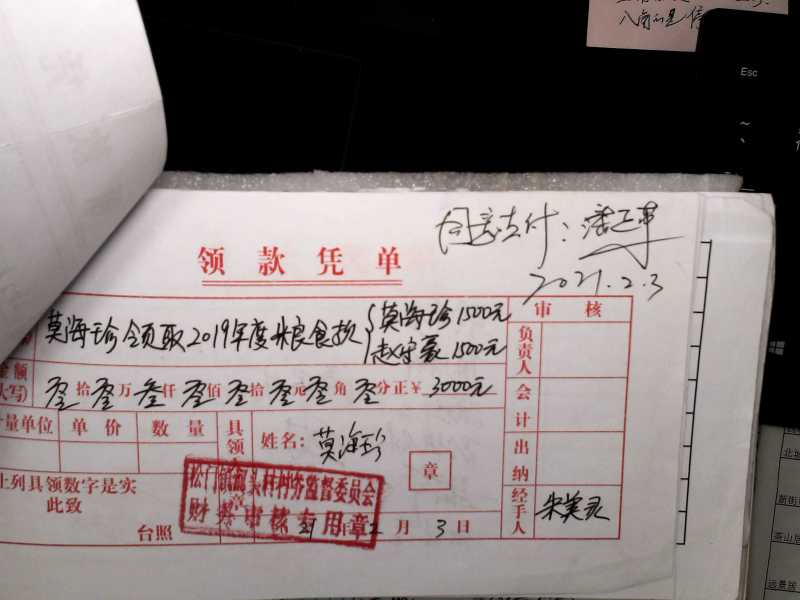 八
Esc
同意支付：潘正革
2021.2.3
领款凭单
莫海珍领取2019年度粮食款{莫海珍1500元
赵守豪1500元
审核
负责人
金额
大写)
零拾零万叁仟零佰零拾零元零角零分正￥3000元
会计
计量单位 单价 数量 具领
姓名：莫海珍
章
出纳
上列具领数字是实
此致
台照
村村务监督委员会
财务审核专用章
21年2月3日
经手人
朱美灵
远景居